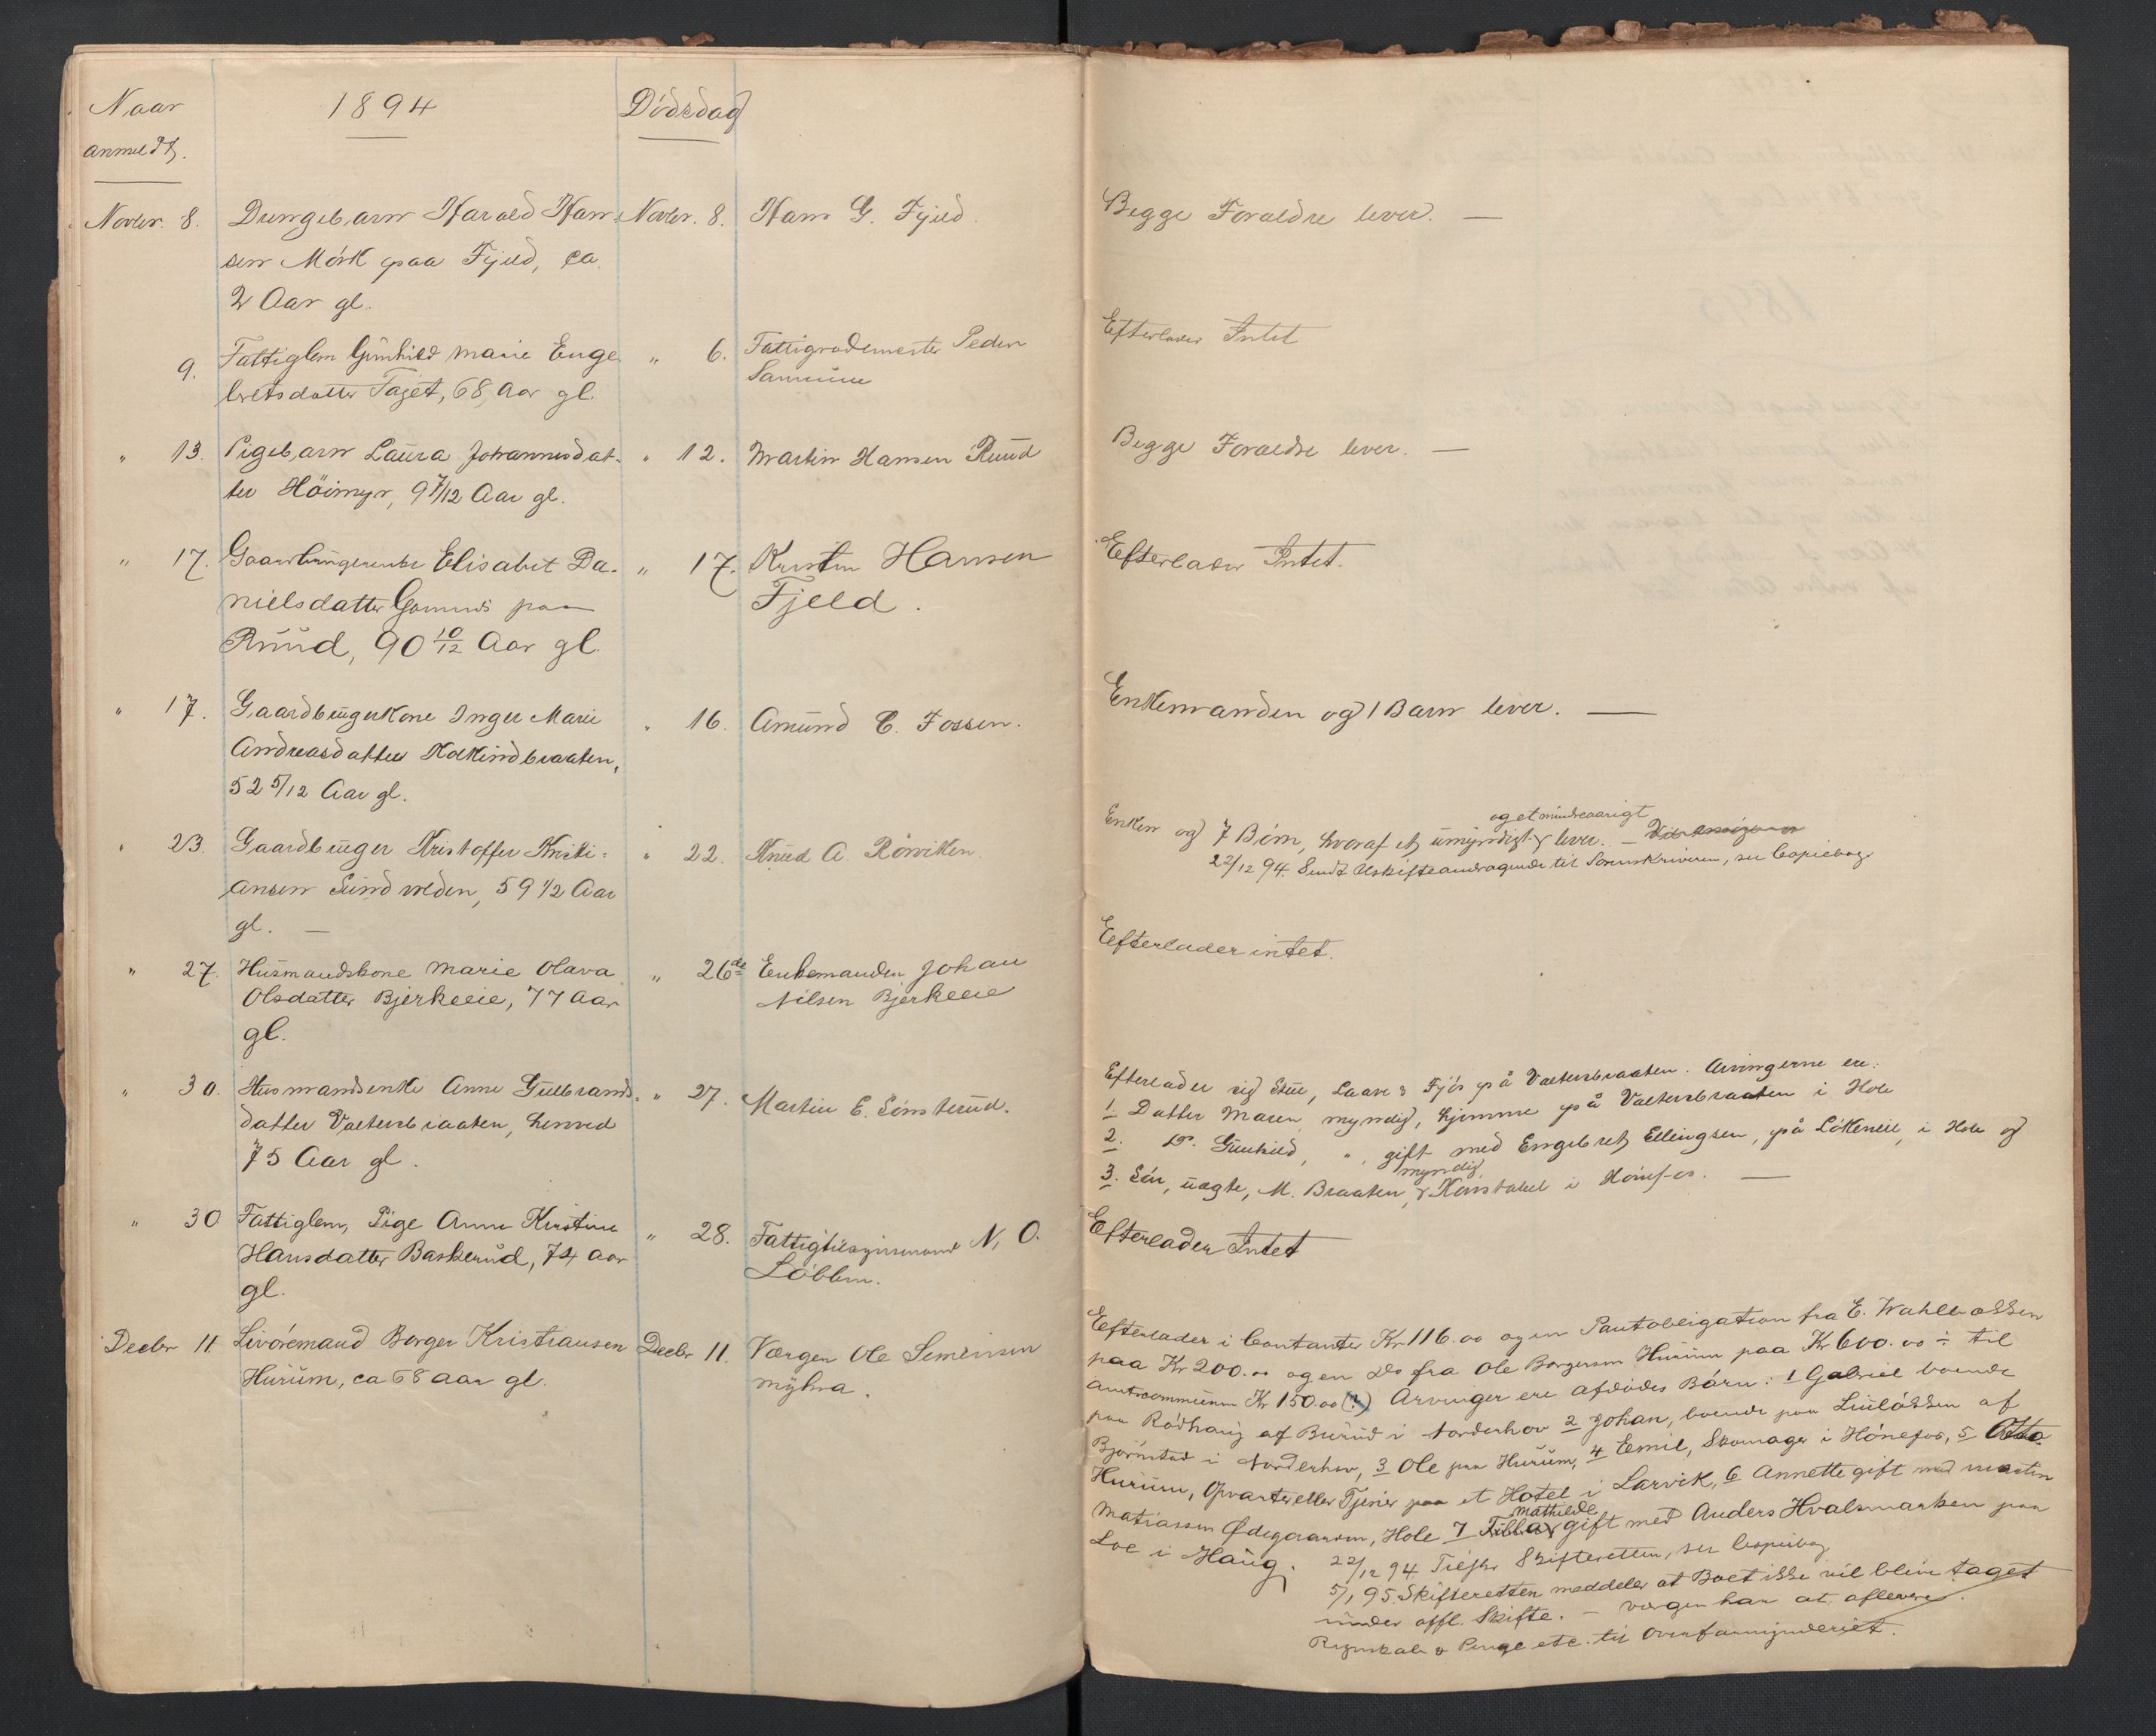 Naar
anmeldt.
1894
Dödsdag
Novbr. 8.
Drengebarn Harald Han-
sen Mörk paa Fjeld, ca.
2 Aar gl.
Novbr. 8.
Hans G. Fjeld.
Begge Foraeldre lever. —
9.
Fattiglem Gunhild Marie Enge
bretsdatter Fajet, 68 Aar gl.
" 6.
Peder
Efterlader Intet
" 13.
Pigebarn Laura Johannesdat-
ter Höimyr, 9 7/12 Aar gl.
" 12.
Martin Hansen Ruud
Begge Foraeldre lever. —
" 17.
Elisabet Da-
nielsdatter paa
Ruud, 90 10/12 Aar gl.
" 17.
Kristen Hansen
Fjeld.
Efterlader Intet.
" 17.
Gaardbrugerkone Inger Marie
Andreasdatter
52 5/12 Aar gl.
" 16.
Amund C. Fossen.
Enkemanden og 1 Barn lever. —
" 23.
Gaardbruger Kristoffer Kristi-
ansen Sundvolden, 59 1/2 Aar
gl. —
" 22.
Knud A. Rörviken.
og et mindreaarigt
Enken og 7 Börn, hvoraf et umyndigt lever. —
22/12 94. Sendt Uskifteandragende til Sorenskriveren, se Copiebog
" 27.
Husmandskone Marie Olava
Olsdatter Bjerkeeie, 77 Aar
gl.
" 26de
Enkemanden Johan
Nilsen Bjerkeeie
Efterlader intet.
" 30.
Husmandsenke Anne Gulbrands-
datter Vaetersbraaten, henved
75 Aar gl.
" 27.
Martin E. Sönsterud.
Efterlader sig Stue, Laave & Fjös på Vaetersbraaten. Arvingerne ere:
1. Datter Maren, myndig, hjemme på Vaetersbraaten i Hole
2. Do. Gunhild, ", gift med Engebret Ellingsen, på Lökeneie, i Hole og
myndig
3. Sön, uægte, M. Braaten, Konstabel i Hönefos. —
" 30
Fattiglem, Pige Anne Kristine
Hansdatter Baskerud, 74 Aar
gl.
" 28.
Fattigtilsynsmand N. O.
Löbben.
Efterlader Intet
Decbr 11.
Livöremand Borger Kristiansen
Hurum, ca 68 aar gl.
Decbr 11.
Værgen Ole Semensen
Myhra.
Efterlader i Contanter Kr 116.00 og en Pantobligation fra E.
paa Kr 200.00 og en Do fra Ole Borgersen Hurum paa Kr 600.00 ÷ til
Amtcommunen Kr 150.00 (?) Arvinger ere afdödes Börn: 1 Gabriel boende
paa Rödhaug af Burud i Norderhov 2 Johan, boende paa af
Björnstad i Norderhov, 3 Ole paa Hurum, 4 Emil, Skomager i Hönefos, 5 Otto
Hurum, Opvarter eller Tjener paa et Hotel i Larvik, 6 Annette gift med Martin
Mathilde
Matiassen Ødegaarden, Hole 7 gift med Anders Hvalsmarken paa
Loe i Haug.
22/12 94 Skifteretten, se Copiebog
5/1 95. Skifteretten meddeler at Boet ikke vil blive taget
under offl. Skifte. — Værgen har at aflevere
Regnskab & Penge etc. til Overformynderiet.